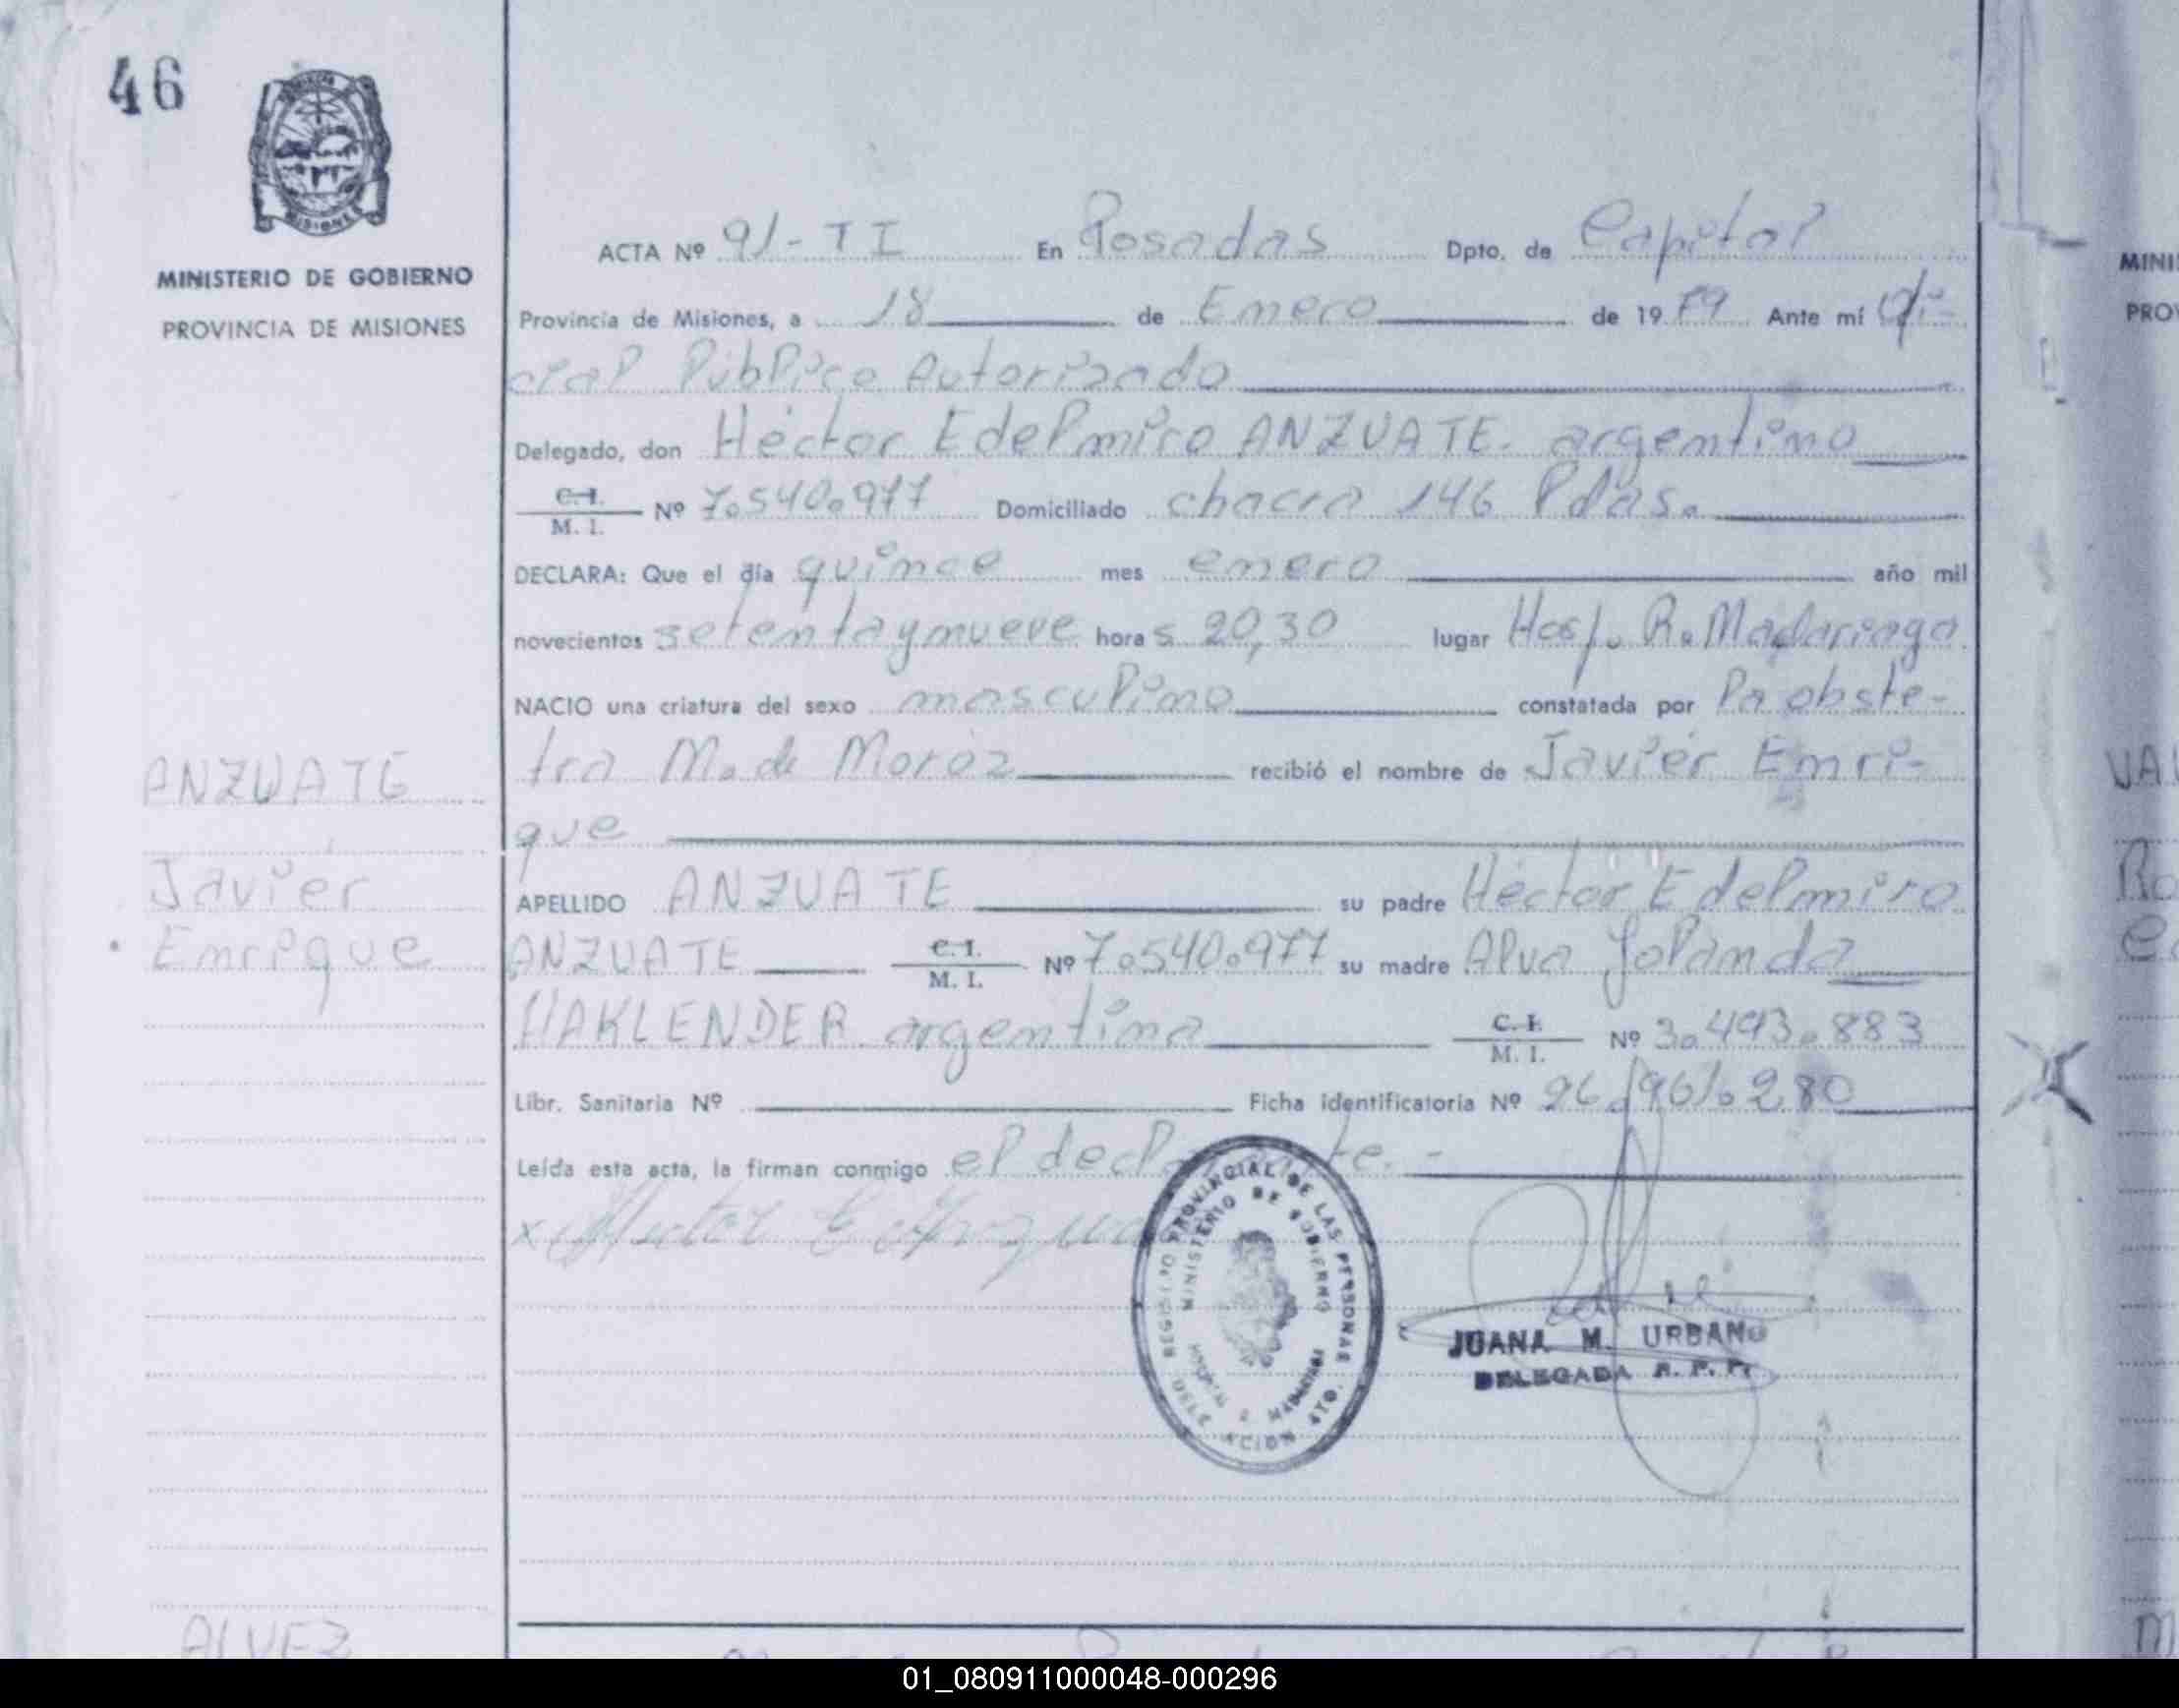 46
MINISTERIO DE GOBIERNO
PROVINCIA DE MISIONES
ACTA Nº 91-TI En Posadas Dpto. de Capital
Provincia de Misiones, a 18 de Enero de 1979 Ante mí Ofi-
cial Público Autorizado
Delegado, don Héctor Edelmiro ANZUATE. argentino
C.I. M. I. Nº 7.540.977 Domiciliado chacra 146 Pdas.
DECLARA: Que el día quince mes enero año mil
novecientos setenta y nueve horas 20,30 lugar Hosp. R. Madariaga
NACIO una criatura del sexo masculino constatada por la obste-
tra M. de Moroz recibió el nombre de Javier Enri-
que
APELLIDO ANZUATE su padre Héctor Edelmiro
ANZUATE C.I. M. I. Nº 7.540.977 su madre Alva Yolanda
HAKLENDER argentina C.I. M. I. Nº 3.493.883
Libr. Sanitaria Nº Ficha identificatoria Nº 26.961.280
Leída esta acta, la firman conmigo el declarante.-
ANZUATE
Javier
Enrique
REGISTRO PROVINCIAL DE LAS PERSONAS
MINISTERIO DE GOBIERNO
DELEGACION 4TO.
JUANA M. URBANO
DELEGADA R. P. P.
ALVEZ
MINI
PRO
01_080911000048-000296